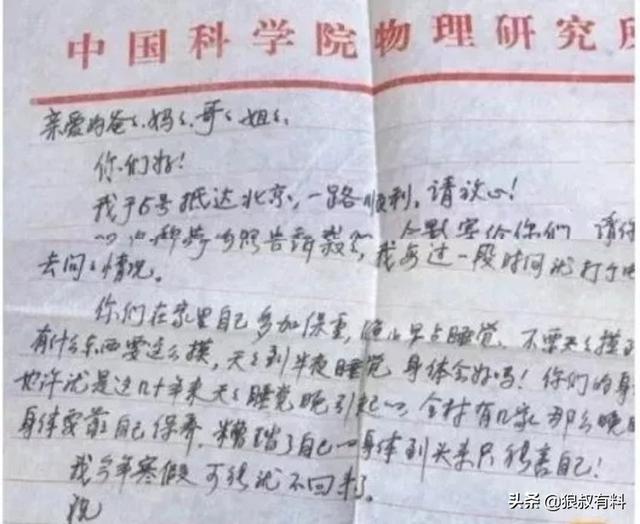 中国科学院物理研究所
亲爱的爸々、妈々、哥々、姐々、
你们好!
我于6号抵达北京,一路顺利,请放心!
告诉 给你们 请
去问々情况。 我每过一段时间就打
你们在家里自己多加保重, 早点睡觉、不要天々摸
有什么东西要这么摸,天々到半夜睡觉 身体会好吗!你们的身
也许就是这几十年来天々睡觉晚引起 全村有几家那么晚
身体要靠自己保养、糟蹋了自己 身体到头来只能害自己!
我今年寒假可能就不回来了。
祝
头条 @狼叔有料